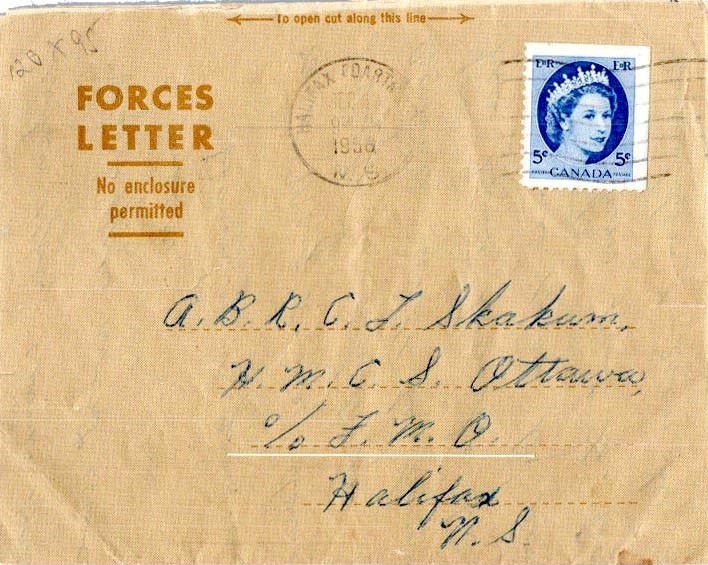 To open cut along this line
120 X 95
FORCES
LETTER
No enclosure
permitted
HALIFAX
1956
N S
E II R E II R
5¢ 5¢
POSTES CANADA POSTAGE
A. B. R. C. J. Skakum,
H. M. C. S. Ottawa,
c/o F. M. O.
Halifax
N. S.